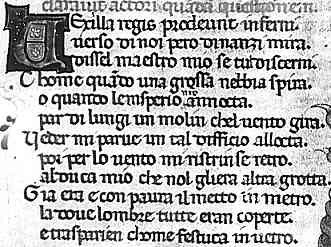 claravit actori quandam questionem.
Vexilla regis prodeunt inferni
verso di noi pero dinanzi mira
dissel maestro mio se tu discerni.
Chome quãdo una grossa nebbia spira.
o quanto lemisperio nro annocta.
par di lungi un molin chel uento gira.
Veder mi parue un tal dificio allocta.
poi per lo uento mi ristrinse retro.
al duca mio che nol gliera altra grotta.
Gia era e con paura il metto in metro.
la doue lombre tutte eran coperte.
e trasparien chome festuca in uetro.